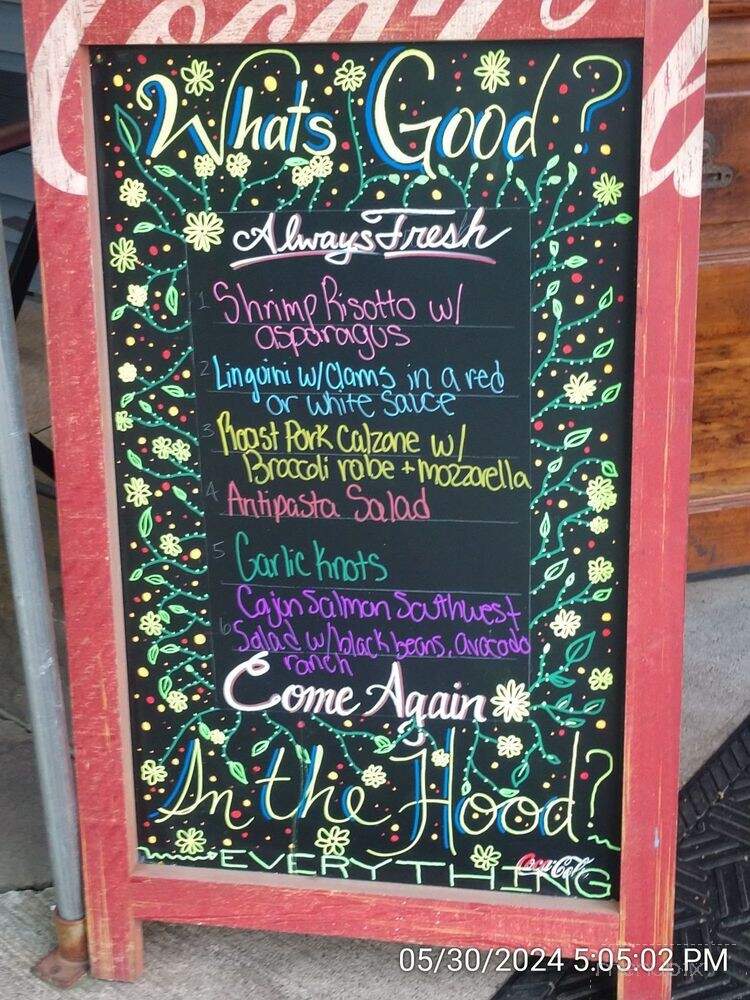 Coca-Cola
Whats Good?
Always Fresh
1 Shrimp Risotto w/
asparagus
2 Linguini w/Clams in a red
or white sauce
3 Roast Pork Calzone w/
Broccoli rabe + mozzarella
4 Antipasta Salad
5 Garlic Knots
Cajun Salmon Southwest
6 Salad w/black beans, avocado
ranch
Come Again
In the Hood?
EVERYTHING
Coca-Cola
05/30/2024 5:05:02 PM